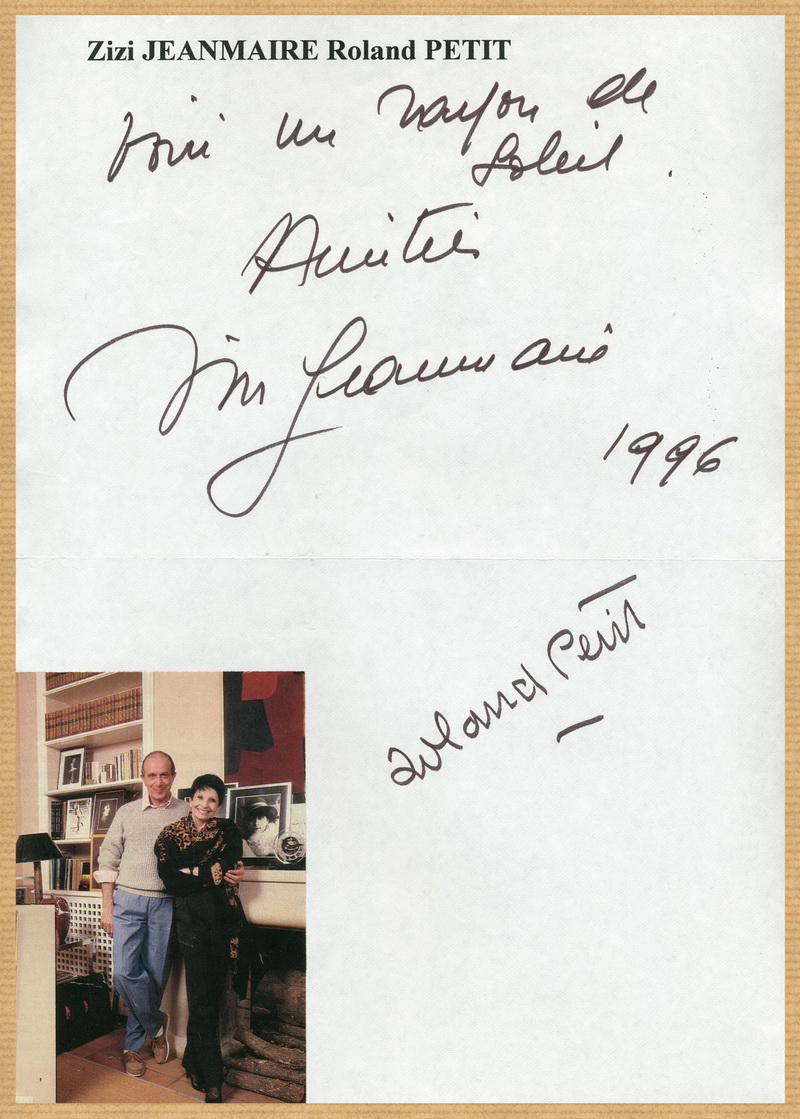 Zizi JEANMAIRE Roland PETIT
Voici un rayon de
Soleil.
Amitiés
Zizi Jeanmaire
1996
Roland Petit